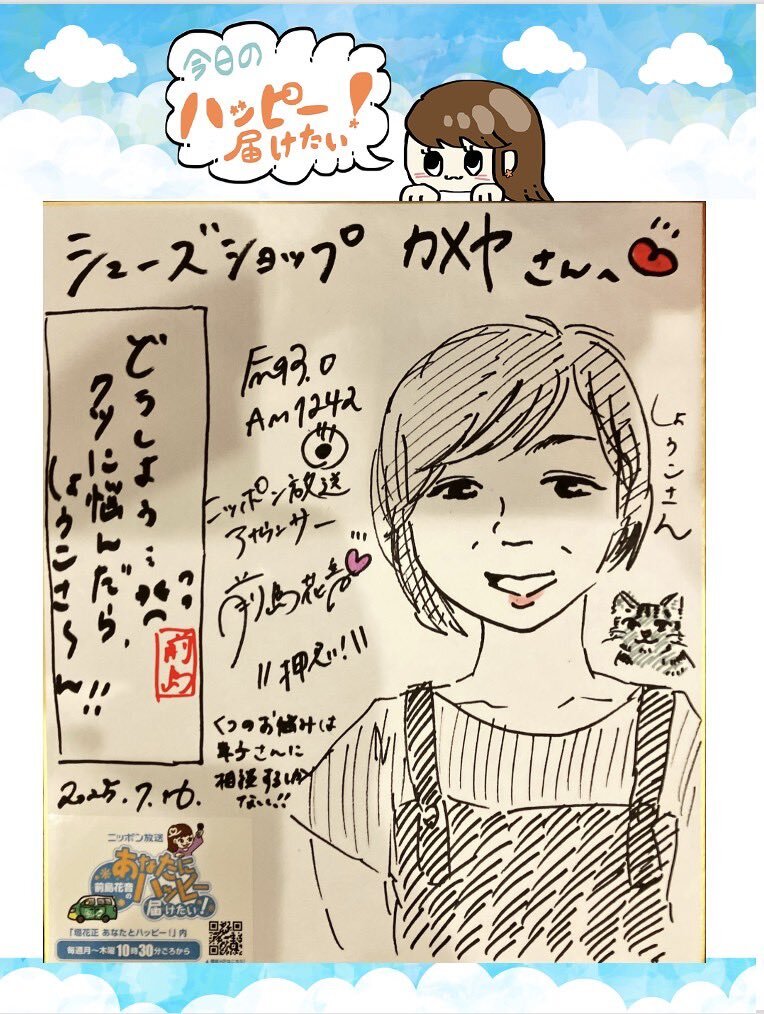 今日の
ハッピー!
届けたい!
シューズショップ カメヤ さんへ
どうしよう…
クツに悩んだら、
しょうこさ〜ん!!
前島
Fm93.0
Am1242
ニッポン放送
アナウンサー
前島花音
"押忍!"
くつのお悩みは
相談するしか
ない!!
しょうこさん
2025.7.16.
ニッポン放送
前島花音の
あなたに
ハッピー
届けたい!
「垣花正 あなたとハッピー!」内
毎週月〜木曜10時30分ごろから